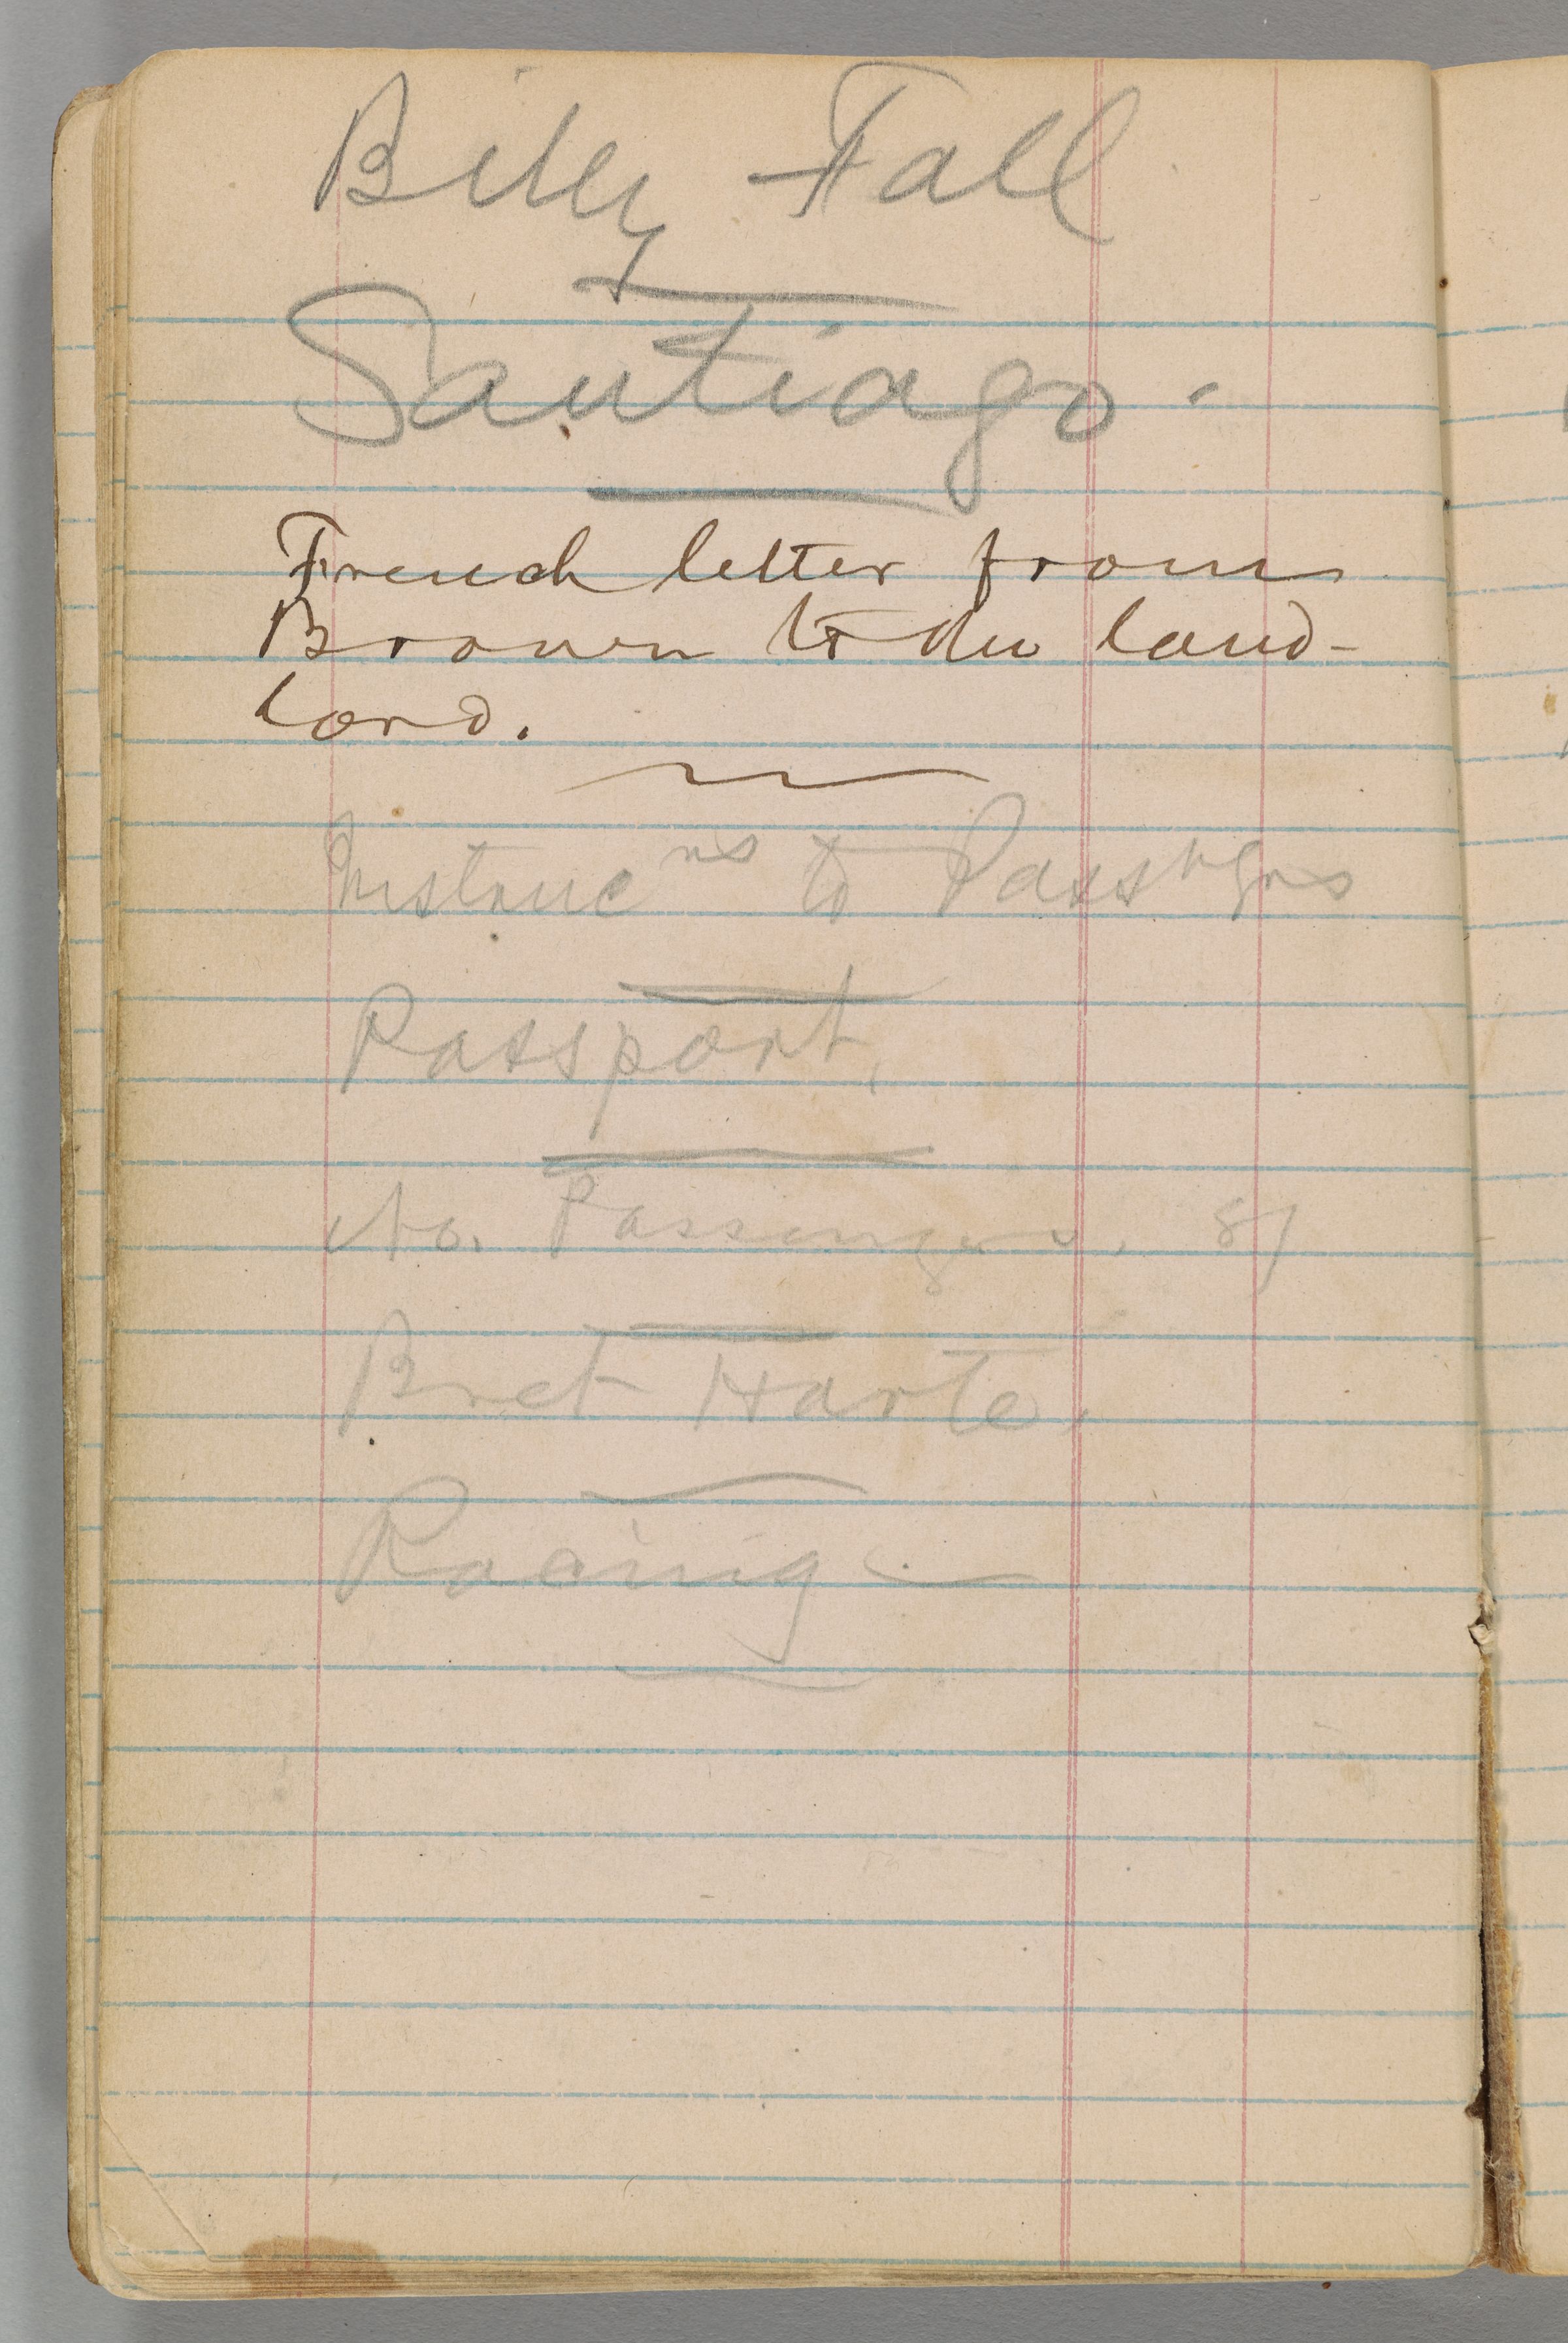 Billy Fall
Santiago.
French letter from
Brown to the land-
lord.
Instrucns to Passngrs
Passport.
No. Passengers, 81
Bret Harte.
Racing —